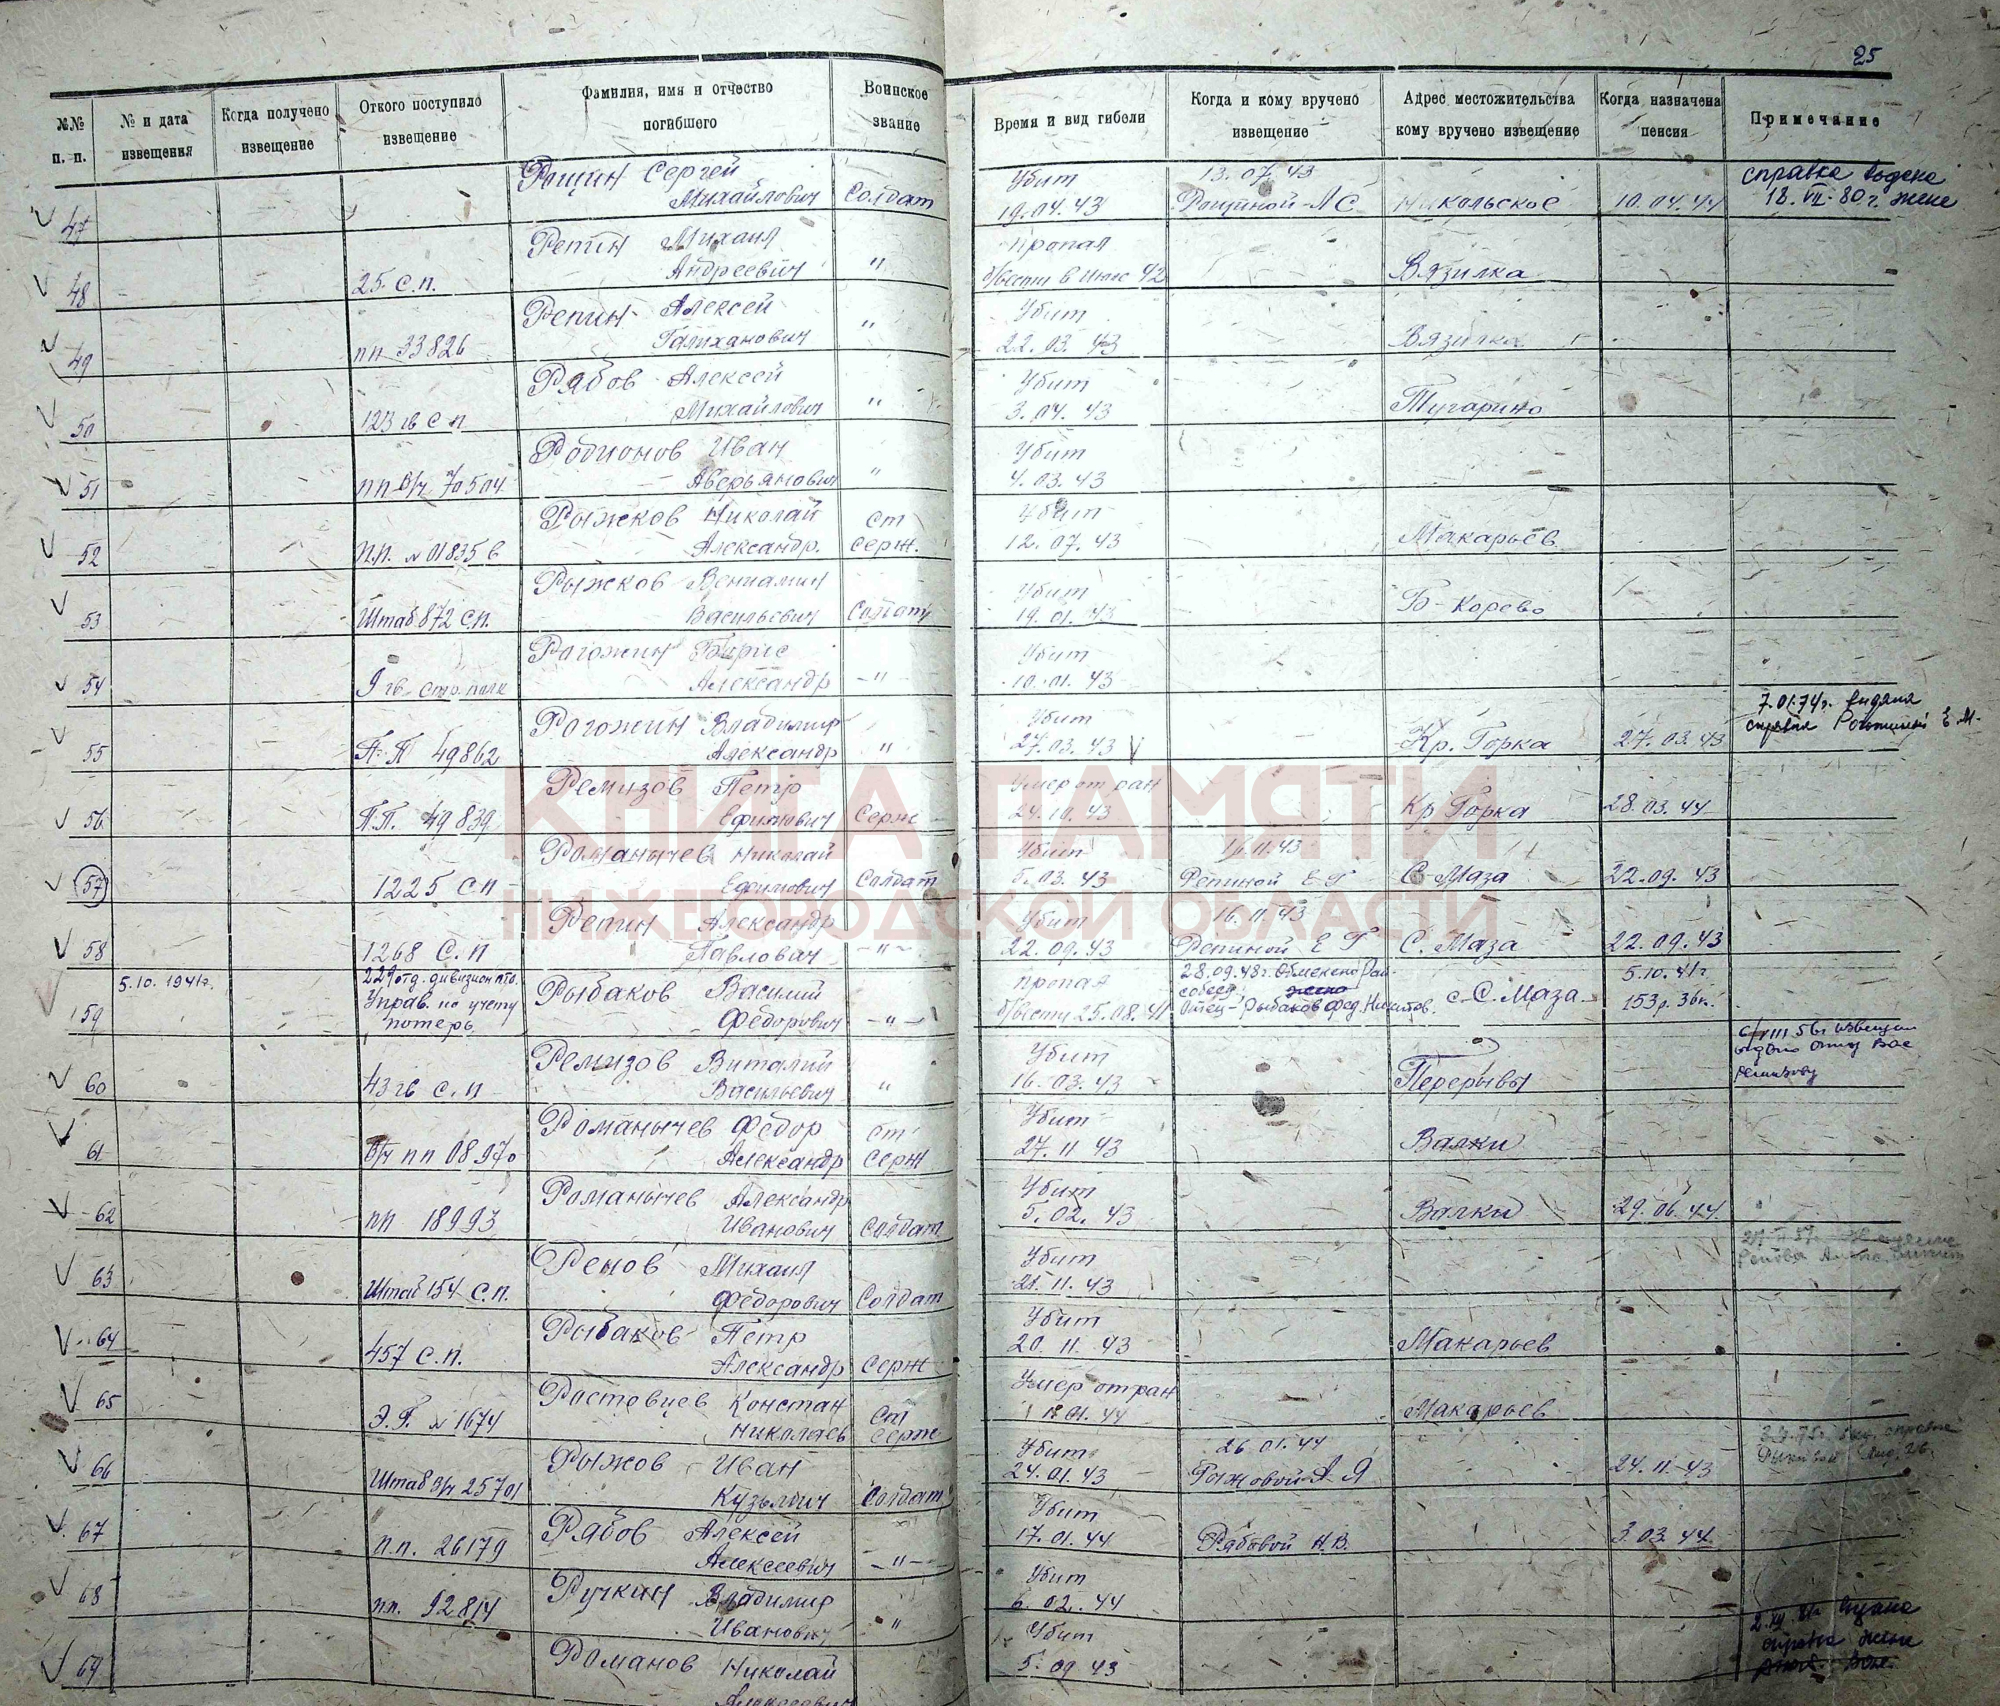 25
№№ п. п. № и дата извещения Когда получено извещение Откого поступило извещение Фамилия, имя и отчество погибшего Воинское звание Время и вид гибели Когда и кому вручено извещение Адрес местожительства кому вручено извещение Когда назначена пенсия Примечание
Рощин Сергей Убит 13.07.43 справка выдана
47 Михайлович Солдат 19.04.43 Рощиной Л С Никольское 10.04.44 18.VII-80 г. жене
Репин Михаил пропал
48 25 с.п. Андреевич " б/вести в июле 42 Вязилка
Репин Алексей Убит
49 пп 33826 Галиханович " 22.03.43 Вязилка
Рябов Алексей Убит
50 123 гв с п Михайлович " 3.04.43 Тугарино
Родионов Иван Убит
51 пп в/ч 70504 Аверьянович " 4.03.43
Рыжков Николай ст Убит
52 п.п. № 01835 в Александр. серж. 12.07.43 Макарьев
Рыжков Вениамин Убит
53 Штаб 872 с.п. Васильевич Солдат 19.01.43 Б-Корево
Рагожин Борис Убит
54 9 гв стр. полк Александр -"- 10.01.43
Рогожин Владимир Убит 7.01.74г. выдана
55 П-П 49862 Александр " 27.03.43 Кр. Горка 27.03.43 справка Е М.
Ремизов Петр Умер от ран
56 П.П. 49839 Ефимович Серж 24.10.43 Кр Горка 28.03.44
Романычев Николай Убит 16.11.43
57 1225 с п Ефимович Солдат 5.03.43 Репиной Е Г С Маза 22.09.43
Репин Александр Убит 16.11.43
58 1268 с. п Павлович -"- 22.09.43 Репиной Е Г С. Маза 22.09.43
5.10.1941г. 229 отд. дивизион пто. Рыбаков Василий пропал 28.09.48г. 5.10.41г
59 Управ. по учету потерь Федорович -"- б/вести 25.08.41 Отец-Рыбаков Фед. Никитов. с. С. Маза 153р. 36к.
Ремизов Виталий Убит
60 43 гв с. п Васильевич " 16.03.43 Перерывы Ремизову
Романычев Федор ст Убит
61 в/ч пп 08970 Александр серж 27.11 43 Валки
Романычев Александр Убит
62 пп 18993 Иванович Солдат 5.02.43 Валки 29.06.44
Ренов Михаил Убит
63 Штаб 154 с.п. Федорович Солдат 21.11.43
Рыбаков Петр Убит
64 457 с.п. Александр Серж 20.11.43 Макарьев
Растовцев Констан Ст Умер от ран
65 Э.Г. № 1674 Николаев серж 01.44 Макарьев
Рыжов Иван Убит 26.01.44
66 Штаб в/ч 25701 Кузьмич Солдат 24.01.43 Рыжовой А Я 24.11.43
Рябов Алексей Убит
67 п.п. 26179 Алексеевич -"- 17.01.44 Рябовой Н.В. 3.03.44
Ручкин Владимир Убит
68 пп. 92814 Иванович " 6.02.44
Романов Николай Убит
69 Алексеевич 5.09 43
КНИГА ПАМЯТИ
НИЖЕГОРОДСКОЙ ОБЛАСТИ